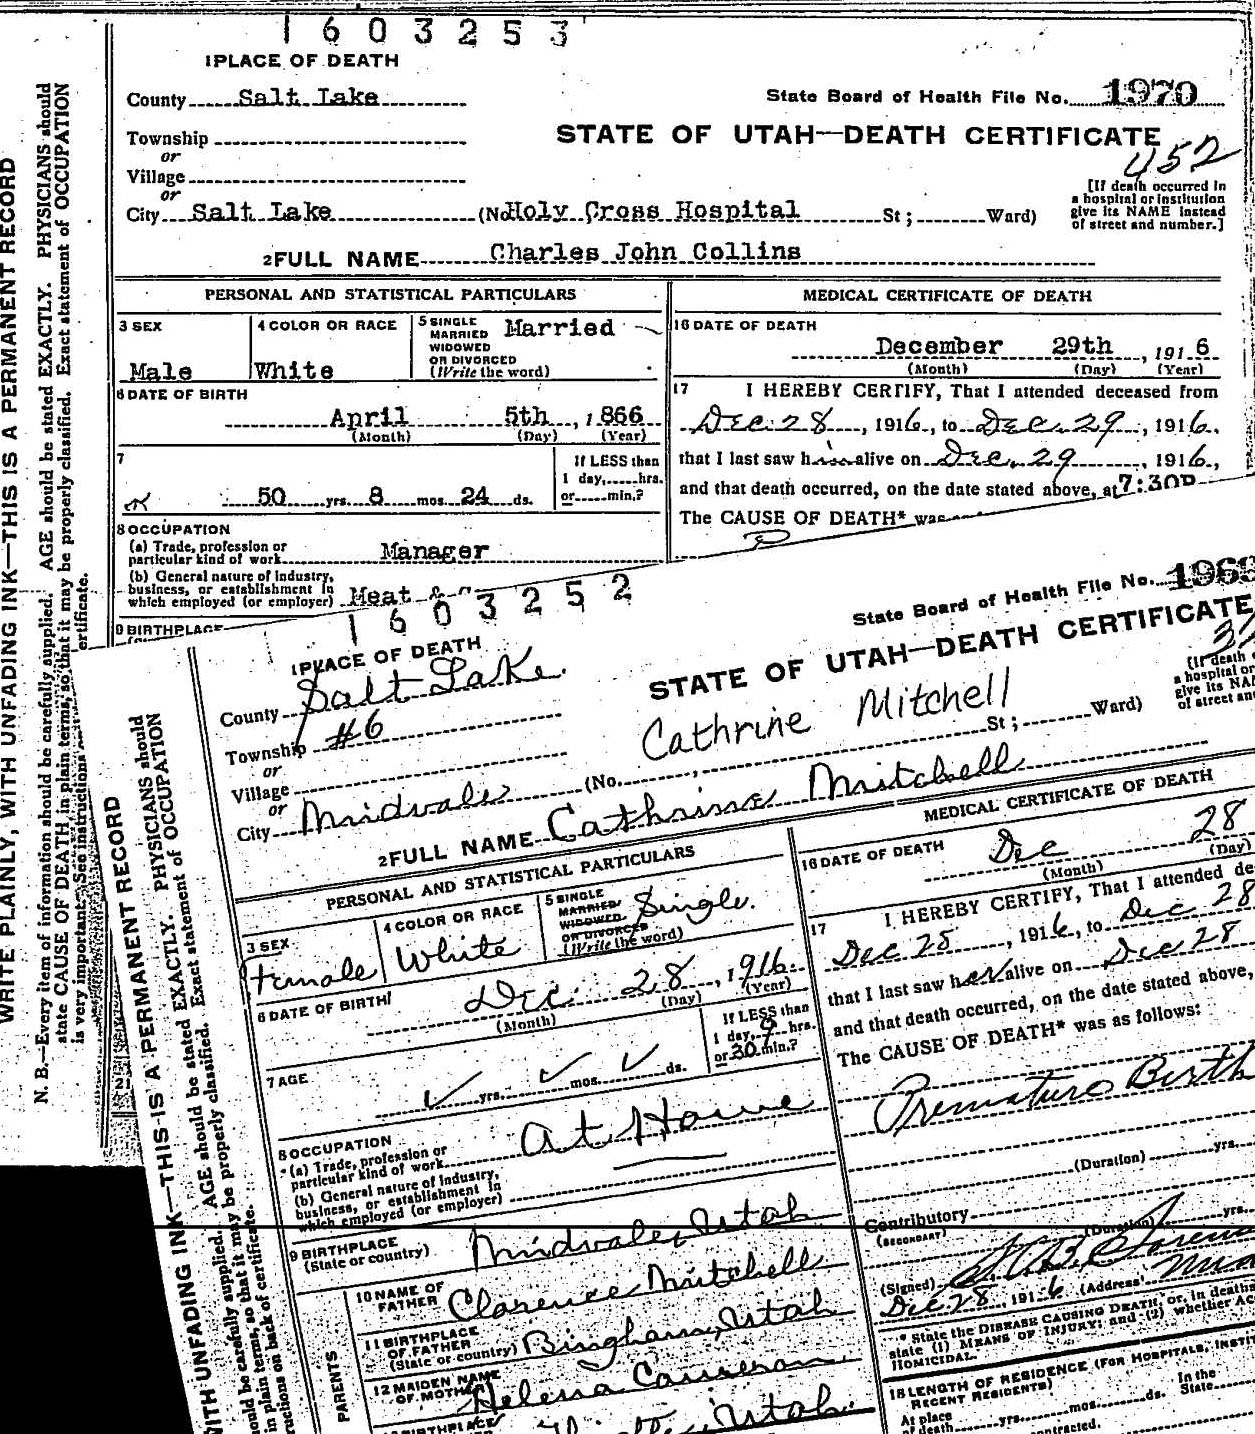 1603253
1 PLACE OF DEATH
County Salt Lake
State Board of Health File No. 1970
Township
STATE OF UTAH—DEATH CERTIFICATE
452
or
Village
or
City Salt Lake (No. Holy Cross Hospital St; Ward)
[If death occurred in
a hospital or institution
give its NAME instead
of street and number.]
2 FULL NAME Charles John Collins
PERSONAL AND STATISTICAL PARTICULARS
MEDICAL CERTIFICATE OF DEATH
3 SEX
Male
4 COLOR OR RACE
White
5 SINGLE
MARRIED
WIDOWED
OR DIVORCED
(Write the word)
Married
16 DATE OF DEATH
December 29th, 1916
(Month) (Day) (Year)
6 DATE OF BIRTH
April 5th, 1866
(Month) (Day) (Year)
17 I HEREBY CERTIFY, That I attended deceased from
Dec. 28, 1916, to Dec. 29, 1916,
that I last saw him alive on Dec. 29, 1916,
and that death occurred, on the date stated above, at 7:30P
The CAUSE OF DEATH* was
7
50 yrs. 8 mos. 24 ds.
If LESS than
1 day, hrs.
or min.?
8 OCCUPATION
(a) Trade, profession or
particular kind of work Manager
(b) General nature of industry,
business, or establishment in
which employed (or employer) Meat &
9 BIRTHPLACE
WRITE PLAINLY, WITH UNFADING INK—THIS IS A PERMANENT RECORD
N. B.—Every item of information should be carefully supplied. AGE should be stated EXACTLY. PHYSICIANS should
state CAUSE OF DEATH in plain terms, so that it may be properly classified. Exact statement of OCCUPATION
is very important. See instructions certificate.
1603252
1 PLACE OF DEATH
County Salt Lake
State Board of Health File No. 1969
Township #6
STATE OF UTAH—DEATH CERTIFICATE
or
Village
Cathrine Mitchell
or
City Midvale (No. , St; Ward)
[If death
a hospital or
give its NA
of street an
2 FULL NAME Cathrine Mitchell
PERSONAL AND STATISTICAL PARTICULARS
MEDICAL CERTIFICATE OF DEATH
3 SEX
Female
4 COLOR OR RACE
White
5 SINGLE
MARRIED
WIDOWED
OR DIVORCED
(Write the word)
Single.
16 DATE OF DEATH
Dec 28
(Month) (Day)
6 DATE OF BIRTH
Dec. 28, 1916.
(Month) (Day) (Year)
17 I HEREBY CERTIFY, That I attended de
Dec 28, 1916, to Dec 28
that I last saw her alive on Dec 28
and that death occurred, on the date stated above,
The CAUSE OF DEATH* was as follows:
Premature Birth
7 AGE
yrs. mos. ds.
If LESS than
1 day, 9 hrs.
or 30 min.?
8 OCCUPATION
(a) Trade, profession or
particular kind of work
At Home
(b) General nature of industry,
business, or establishment in
which employed (or employer)
(Duration) yrs.
Contributory
(SECONDARY)
(Duration) yrs.
9 BIRTHPLACE
(State or country) Midvale, Utah
(Signed)
Dec 28, 1916 (Address)
PARENTS
10 NAME OF
FATHER Clarence Mitchell
11 BIRTHPLACE
OF FATHER
(State or country) Bingham, Utah
12 MAIDEN NAME
OF MOTHER Helena Cameron
BIRTHPLACE
Utah.
* State the DISEASE CAUSING DEATH, or, in deaths
state (1) MEANS OF INJURY; and (2) whether AC
HOMICIDAL.
18 LENGTH OF RESIDENCE (FOR HOSPITALS, INSTI
RECENT RESIDENTS)
At place
of death yrs. mos. ds.
In the
State
ntracted.
WITH UNFADING INK—THIS IS A PERMANENT RECORD
ould be carefully supplied. AGE should be stated EXACTLY. PHYSICIANS should
in plain terms, so that it may be properly classified. Exact statement of OCCUPATION
ructions on back of certificate.